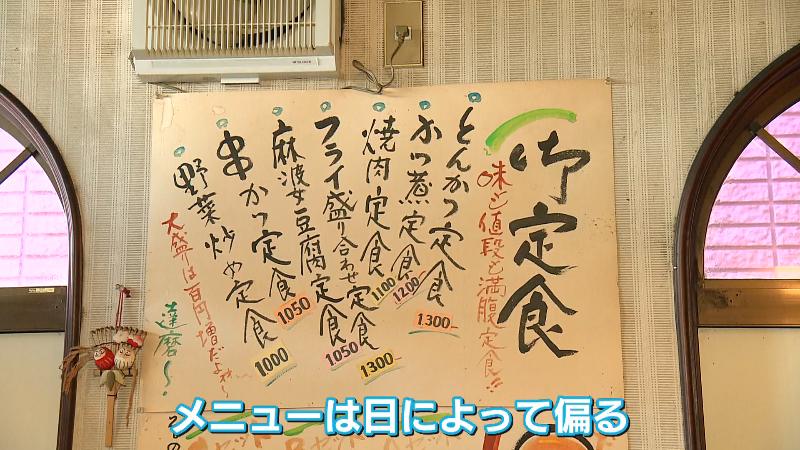 御定食
味と値段と満腹定食!!
とんかつ定食
1300-
かつ煮定食
1200-
焼肉定食
1100-
フライ盛り合わせ定食
1300-
麻波女豆腐定食
1050
串かつ定食
1050
野菜炒め定食
1000
大盛りは百円増だよ〜
達磨〜!
メニューは日によって偏る